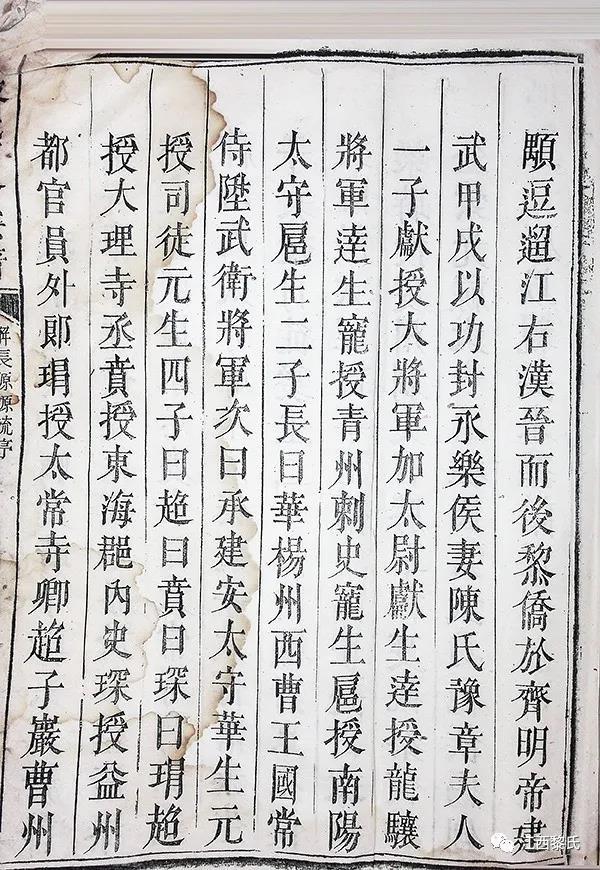 顒逗遛江右漢晉而後黎僑於齊明帝建
武甲戌以功封永樂侯妻陳氏豫章夫人
一子獻授大將軍加太尉獻生逵授龍驤
將軍逵生寵授青州刺史寵生扈授南陽
太守扈生二子長曰華楊州西曹王國常
侍陞武衛將軍次曰承建安太守華生元
授司徒元生四子曰趂曰賁曰琛曰琄趂
授大理寺丞賁授東海郡內史琛授益州
都官員外郎琄授太常寺卿趂子巖曹州
解長源源流序
江西黎氏